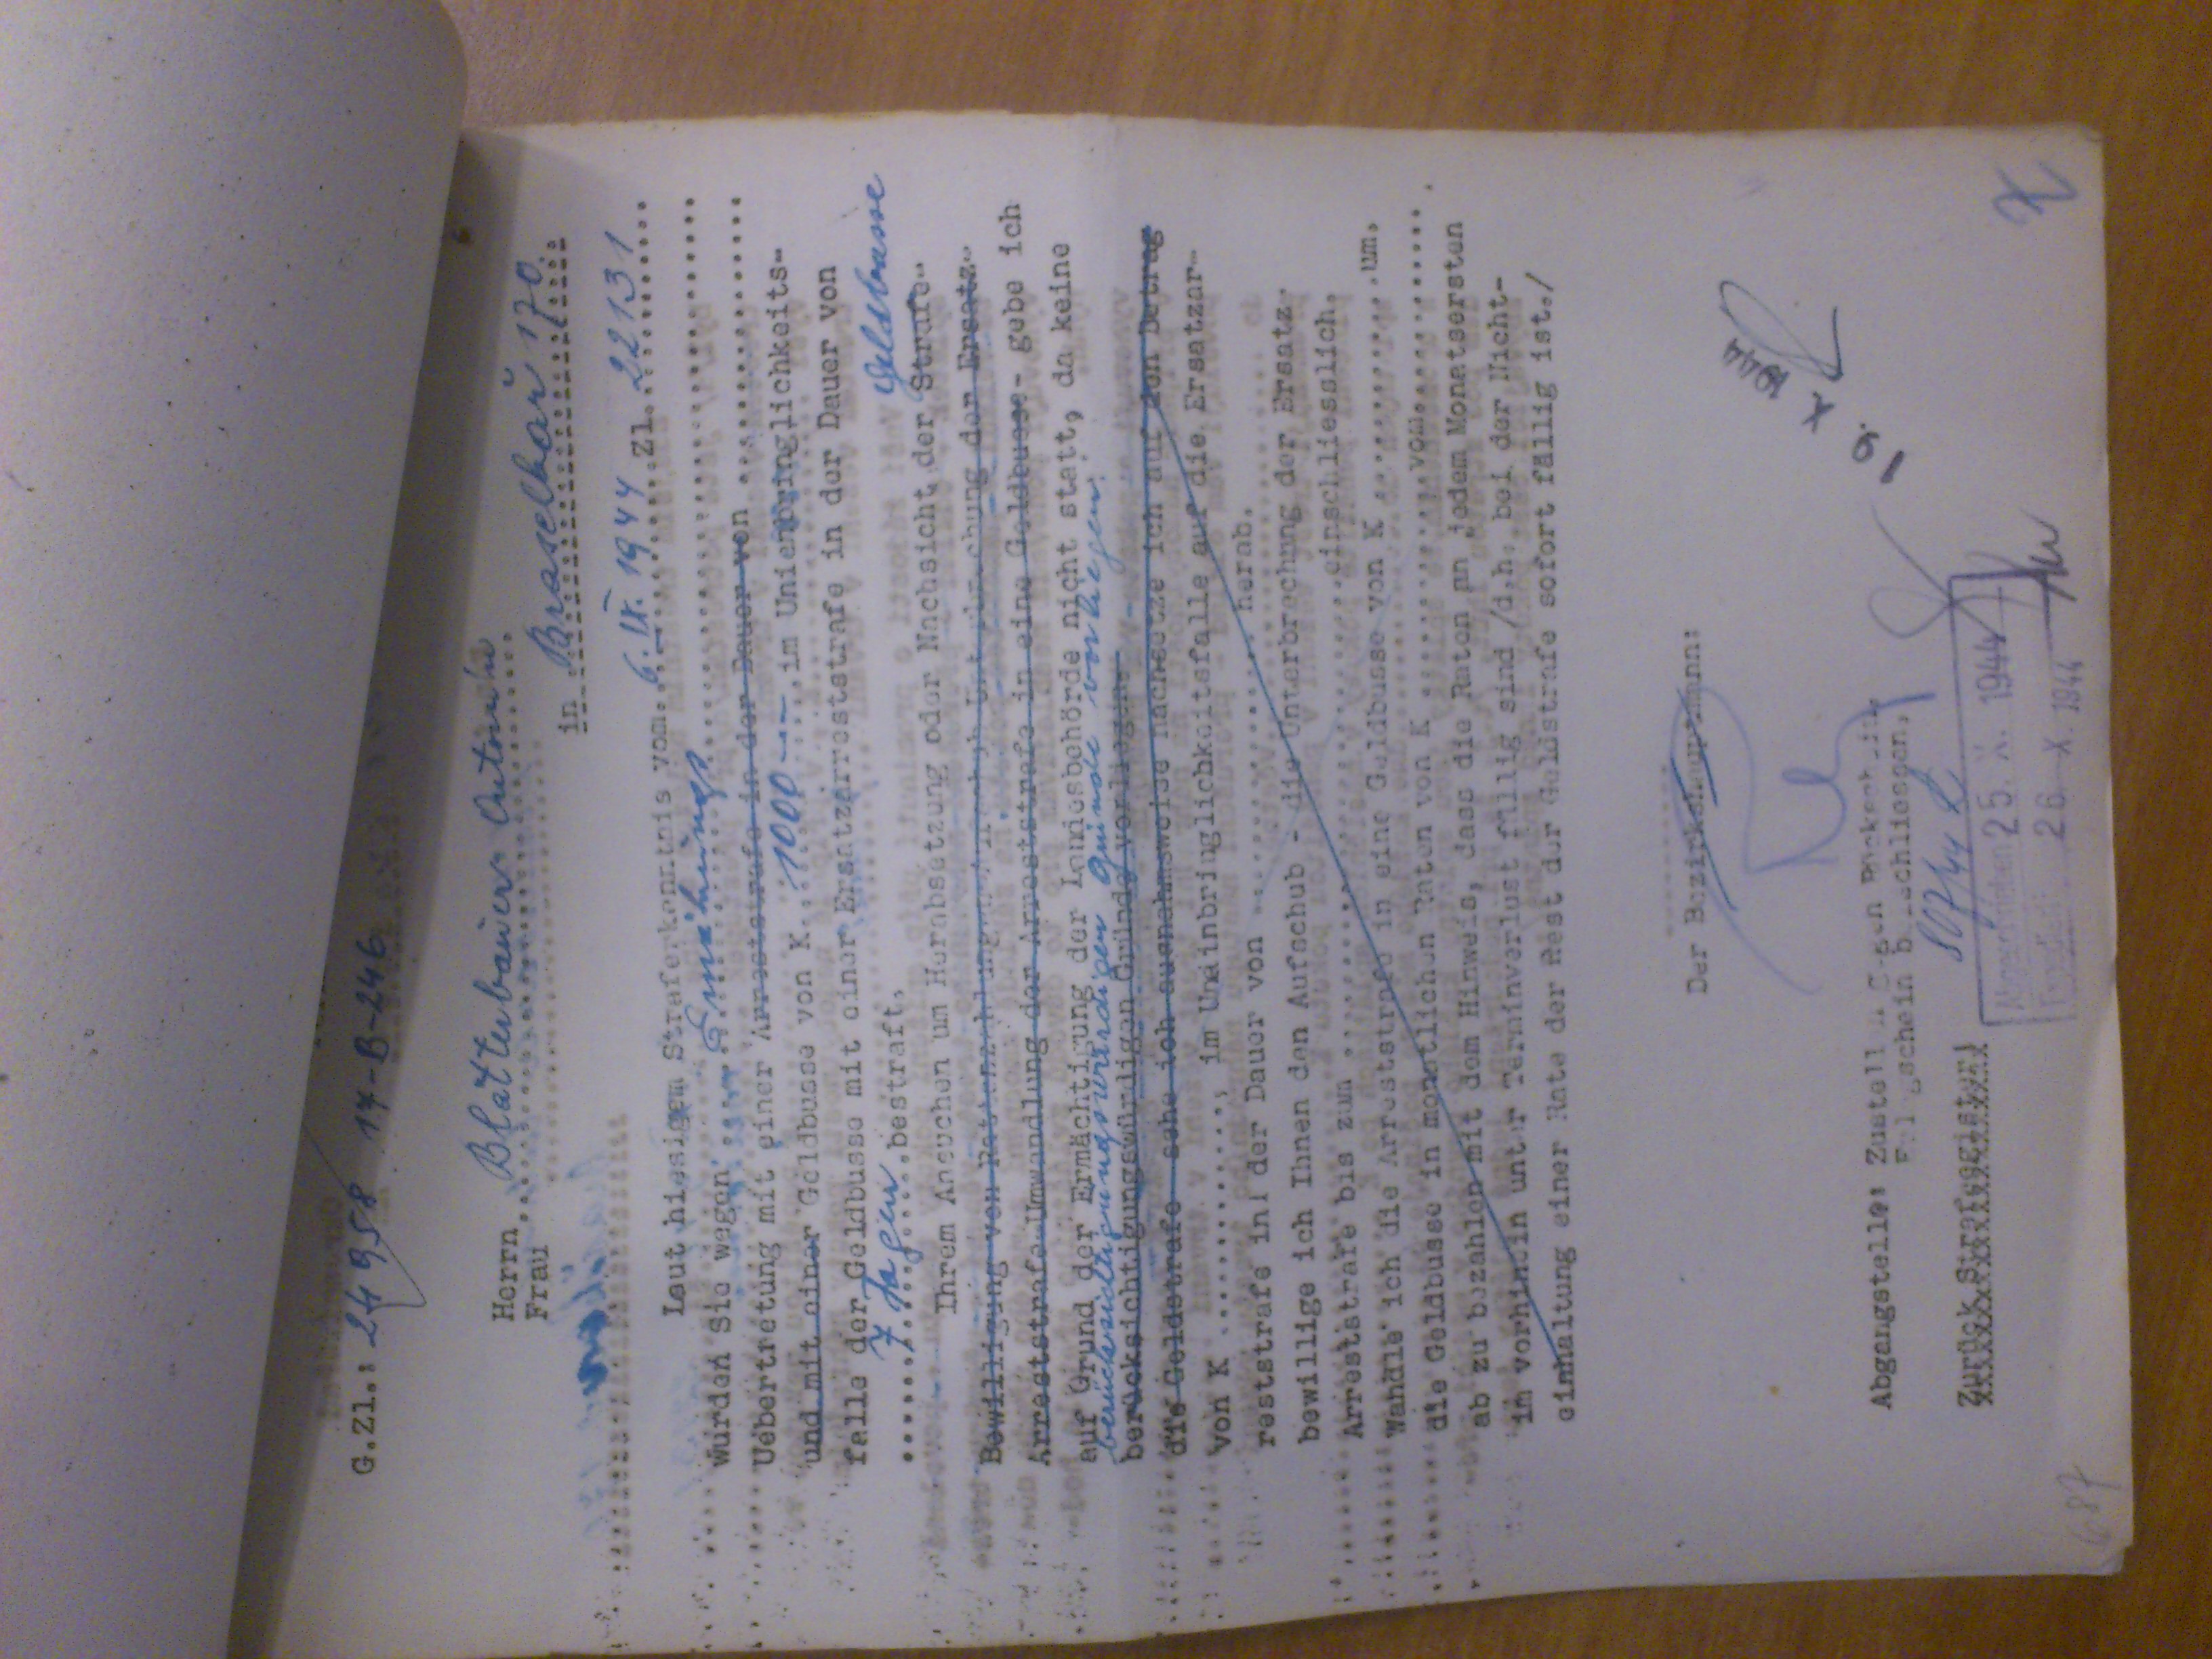 G.Zl.: 24958 17-B-246
Herrn Blätterbauer
Frau
in 170.
Laut hiesigem Straferkenntnis vom. 6.IX.1944 Zl. 22131
wurden Sie wegen Ernährungs
Uebertretung mit einer Arreststrafe in der Dauer von ................
und mit einer Geldbusse von K. 1000 --- im Unienbringlichkeits-
falle der Geldbusse mit einer Ersatzarreststrafe in der Dauer von
7 Tagen bestraft.
Geldbusse
Ihrem Ansuchen um Herabsetzung oder Nachsicht der Strafe-
Bewilligung von Rattenzahlungen-Aufschub Unterbrechung der Ersatz-
Arreststrafe-Umwandlung der Arreststrafe in eine Geldbusse- gebe ich
auf Grund der Ermächtigung der Landesbehörde nicht statt, da keine
berücksichtigungswürdigen Gründe vorliegen.
berücksichtigungswürdigen Gründe vorliegen.
die Geldstrafe sehe ich ausnahmsweise nach-setze ich auf den Betrag
von K .............., im Unainbringlichkeitsfalle auf die Ersatzar-
reststrafe in! der Dauer von ................. herab.
bewillige ich Ihnen den Aufschub - die Unterbrechung der Ersatz-
Arreststrafe bis zum .............................einschliesslich.
Wandle ich die Arreststrafe in eine Geldbusse von K .............um.
die Geldbusse in monatlichen Raten von K .............vom............
ab zu bezahlen mit dem Hinweis, dass die Raten an jedem Monatsersten
im vorhinein unter Terminverlust fällig sind /d.h. bei der Nicht-
einhaltung einer Rate der Rest der Geldstrafe sofort fällig ist./
Der Bezirkshauptmann:
19. X 1944
Abgangstelle: Zustellen gegen Rückschein.
Erlagschein beischliessen.
807/44
Zurück Strafregister!
Abgeschrieben 25. X. 1944
Expediert: 26 X. 1944
687